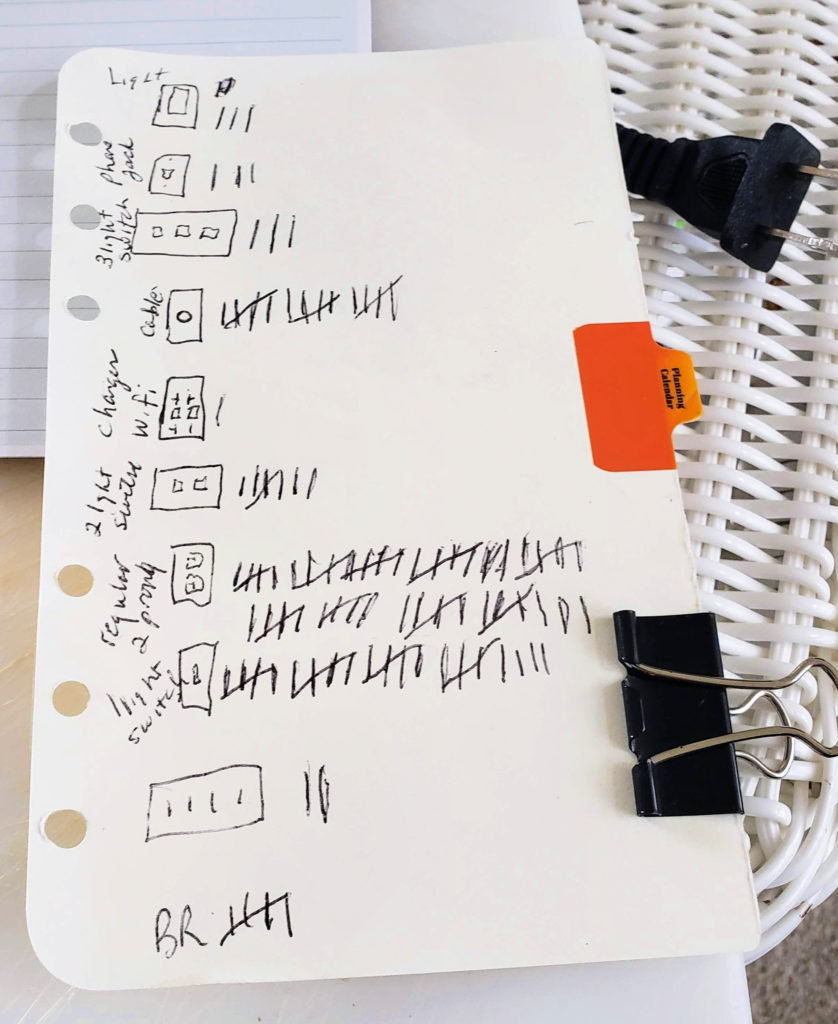 Light
phone
jack
3 light
switch
cable
charger
wifi
2 light
switch
regular
2 prong
light
switch
BR
Planning
Calendar